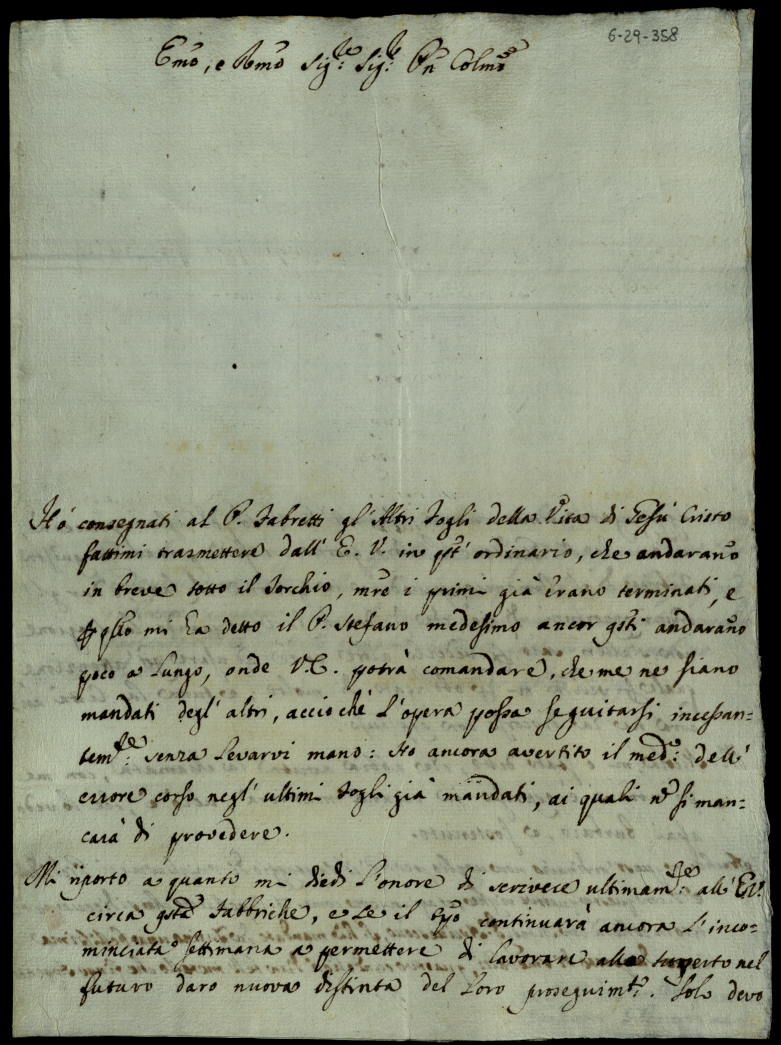 6-29-358
Emo, e Rmo Sig.re Sig.re Pn Colmo
Hò consegnati al P. Fabretti gl'Altri Fogli della Vita di Gesù Cristo
fattimi trasmettere dall'E. V. in qst' ordinario, che andaranno
in breve sotto il Torchio, mre i primi già erano terminati, e
p qllo mi ha detto il P. Stefano medesimo ancor qsti andaranno
poco a Lungo, onde V.E. potrà comandare, che me ne siano
mandati degl'altri, acciochè L'opera possa seguitarsi incessan=
tem.te senza Levarvi mano: Ho ancora avertito il med.o dell'
errore corso negl'ultimi Fogli già mandati, ai quali n si man=
carà di provedere.
Mi riporto a quanto mi diedi L'onore di scrivere ultimam.te all'E.V.
circa qste Fabbriche, e se il tpo continuarà ancora L'inco=
minciata settimana a permettere di lavorare allo scoperto nel
futuro darò nuova distinta del Loro proseguim.to. Solo devo